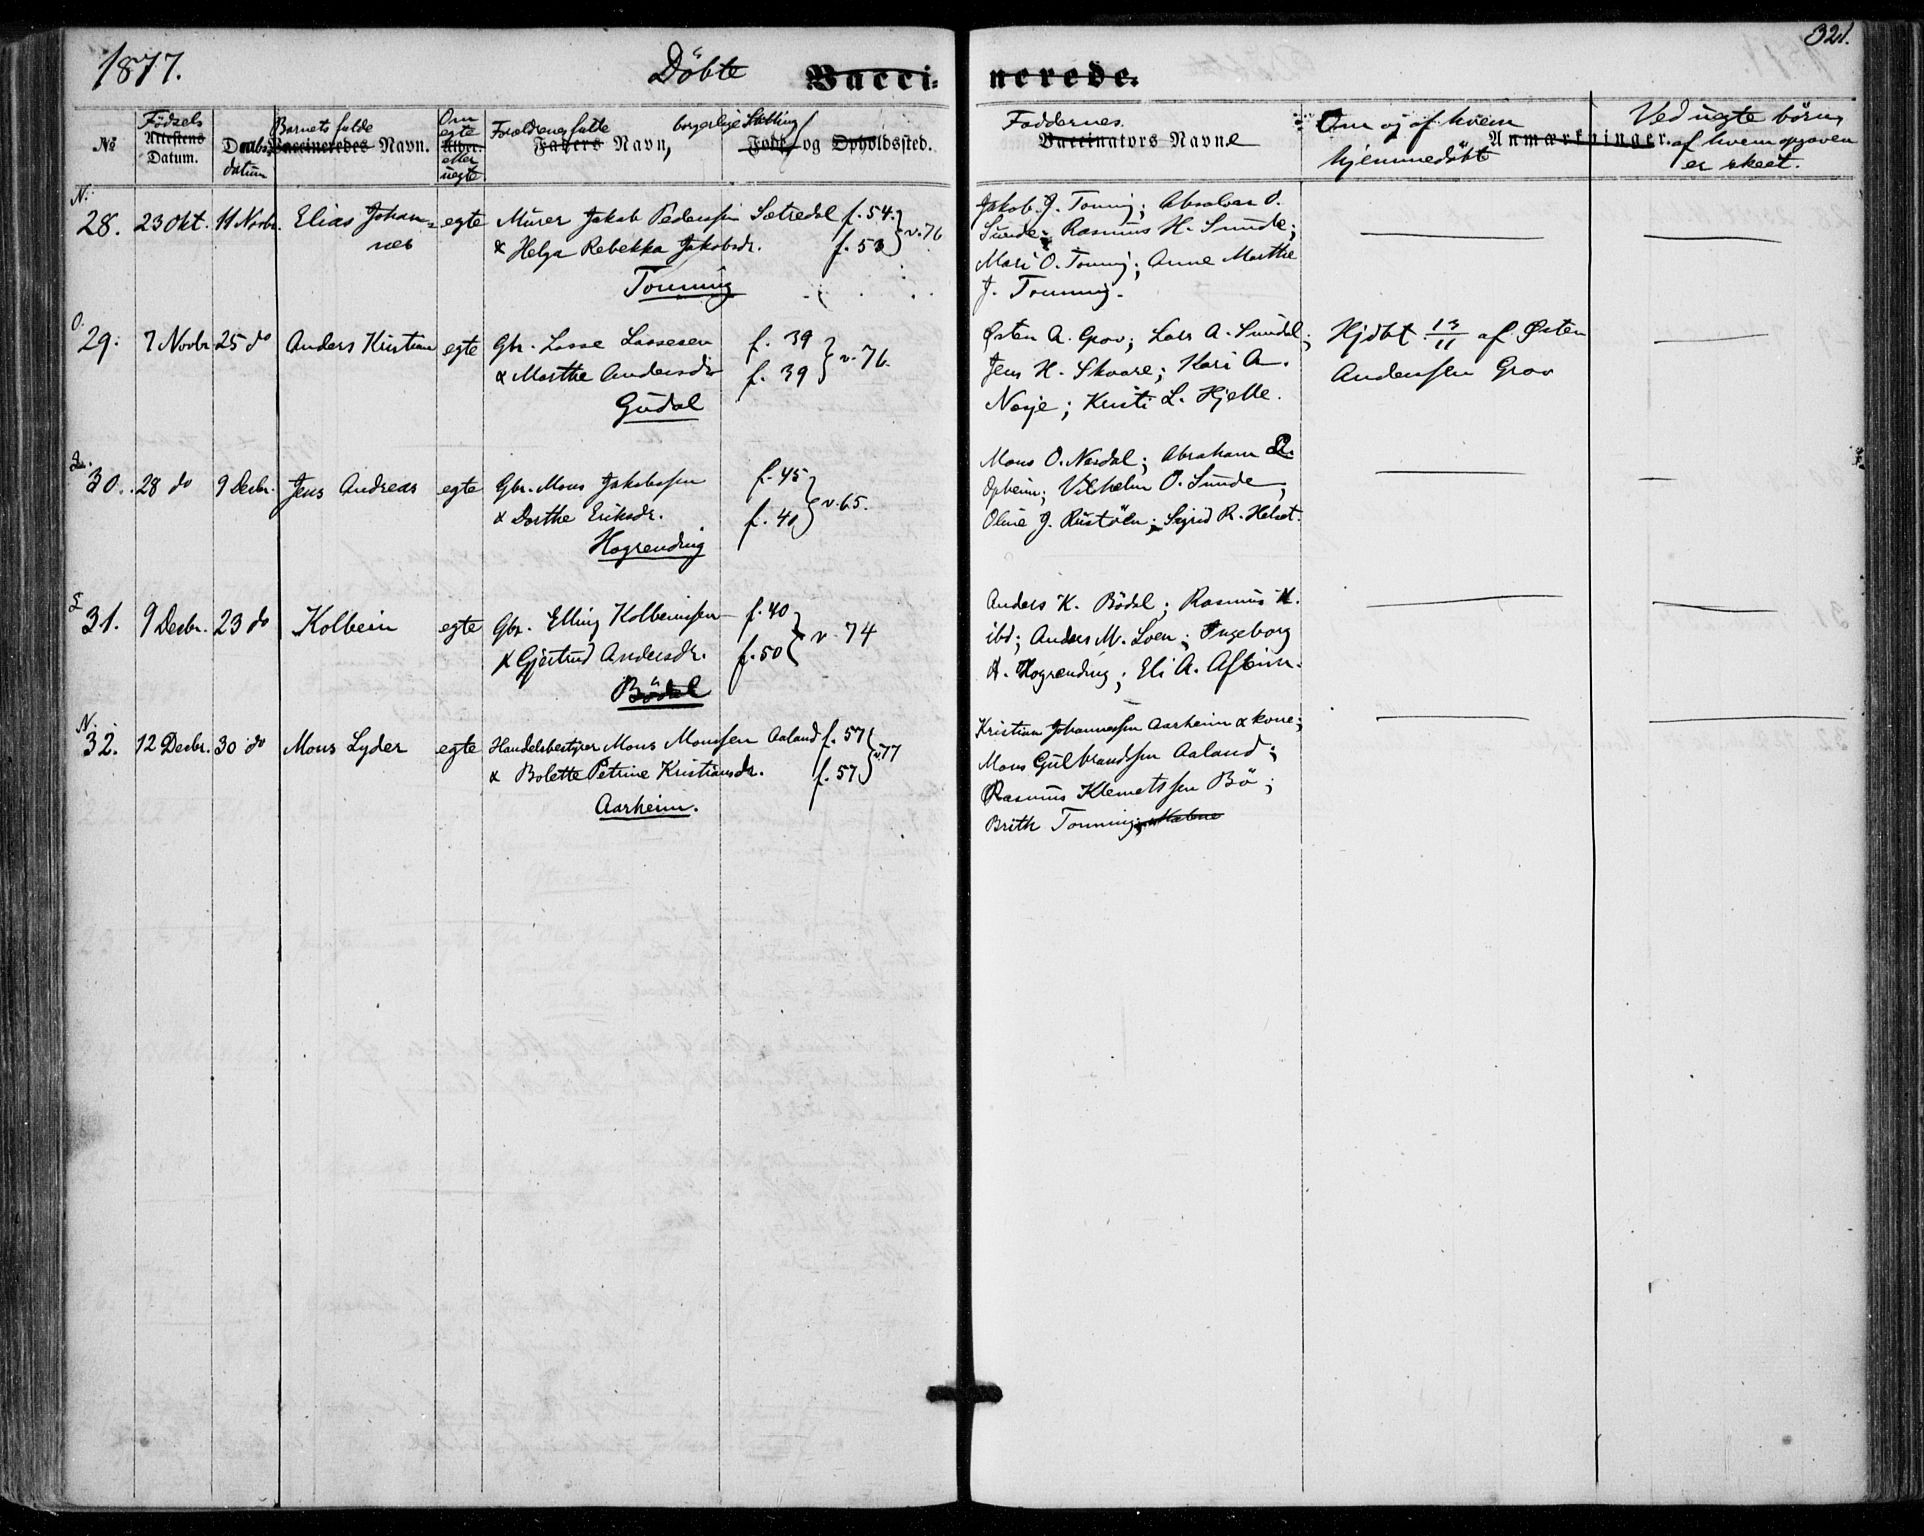 1877.
Döbte Vacci-
nerede.
321.
No
Födsels Attestens Datum.
Daabsdatum
Barnets fulde Vaccineredes Navn.
Om egte eller uegte
Forældrenes fulde Faders Navn, borgerlige Stilling og Opholdssted.
Faddernes Vaccinators Navne
Om og af hvem hjemmedöbt
Anmærkninger.
Ved uegte börn, af hvem opgaven er skeet.
N.
28. 23 Okt. 11 Novbr. Elias Johan= egte Murer Jakob Pederssen Sætredal f. 54. } v. 76
nes & Helga Rebekka Jakobsdr. f. 53
Tonning
Jakob J. Tonning; Absalon O.
Sunde; Rasmus H. Sunde;
Mari O. Tonning; Anne Marthe
J. Tonning.
O.
29. 7 Novbr 25 do Anders Kristian egte Gbr. Lasse Lassesen f. 39 } v. 76.
& Marthe Andersdr f. 39
Gudal
Østen A. Grov; Lars A. Sundal;
Jens H. Skaare; Kari A.
Nesje; Kirsti L. Hjelle.
Hjdbt 13/11 af Østen
Anderssen Grov
30. 28 do 9 Decbr. Jens Andreas egte Gbr. Mons Jakobssen f. 45 } v. 65.
& Dorthe Eriksdr. f. 40
Hogrending
Mons O. Nesdal; Abraham
Opheim; Vilhelm O. Sunde;
Oline J. Rustöen; Sigrid R. Helset.
L
31. 9 Decbr. 23 do Kolbein egte Gbr. Elling Kolbeinssen f. 40 } v. 74
& Gjertrud Andersdr. f. 50
Bödal
Anders K. Bödal; Rasmus K.
ibd; Anders M. Loen; Ingeborg
A. Hogrending; Eli A. Aflem.
N.
32. 12 Decbr. 30 do Mons Lyder egte Handelsbestyrer Mons Monssen Aaland f. 57 } v. 77
& Bolette Petrine Kristiansdr. f. 57
Aarheim.
Kristian Johannessen Aarheim & kone;
Mons Gulbrandssen Aaland;
Rasmus Klemetssen Bö;
Brith Tonning